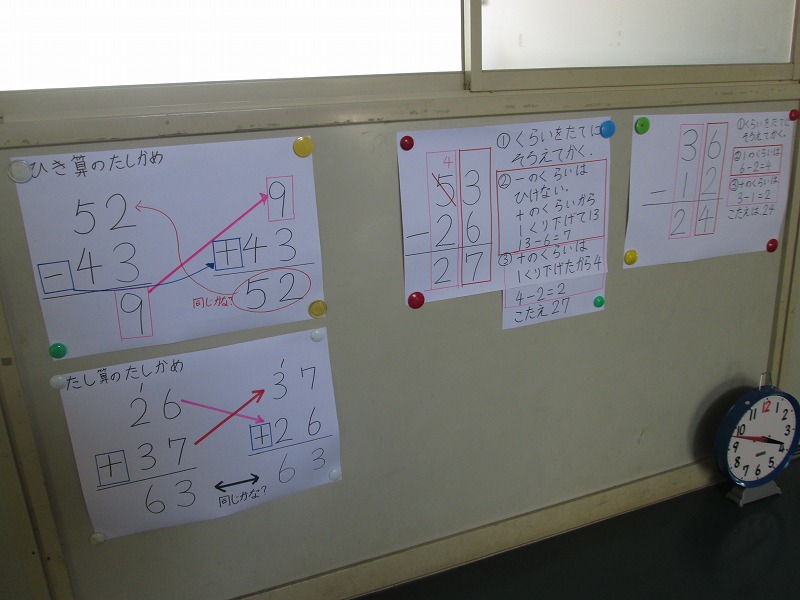 ひき算のたしかめ
52
－43
9
9
＋43
同じかな?
52
たし算のたしかめ
1
26
＋37
63
1
37
＋26
63
同じかな?
4
53
－26
27
①くらいをたてに
そろえてかく.
②一のくらいは
ひけない.
十のくらいから
1くり下げて13
13－6＝7
③十のくらいは
1くり下げたから4
4－2＝2
こたえ27
36
－12
24
①くらいをたてに
そろえてかく.
②1のくらいは
6－2＝4
③十のくらいは
3－1＝2
こたえは24
12
1
2
3
4
5
6
7
8
9
10
11